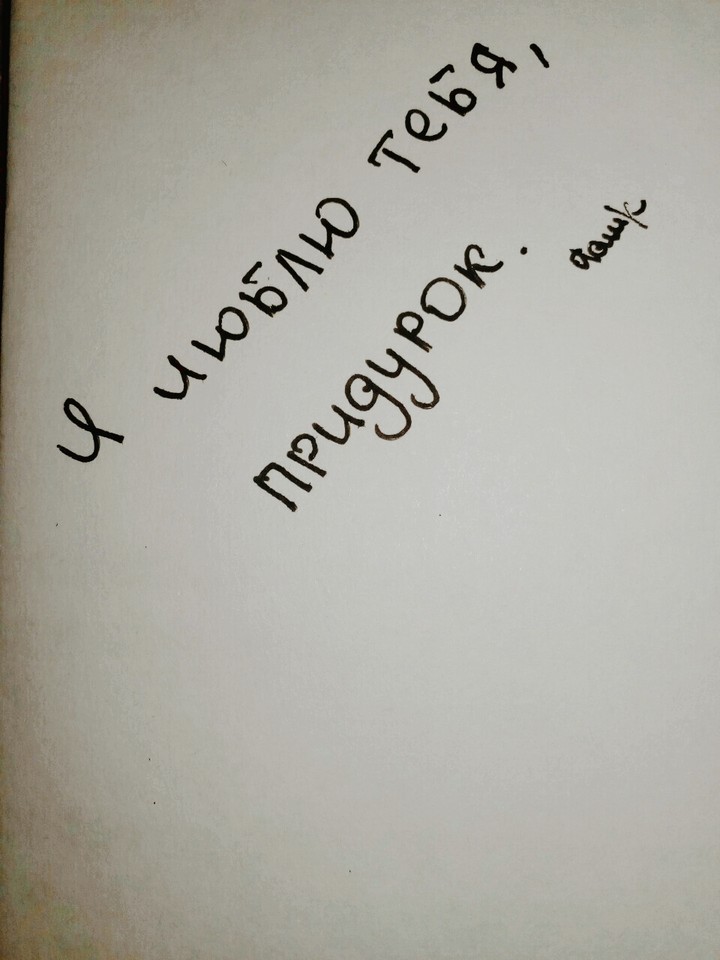 Я люблю тебя,
придурок.